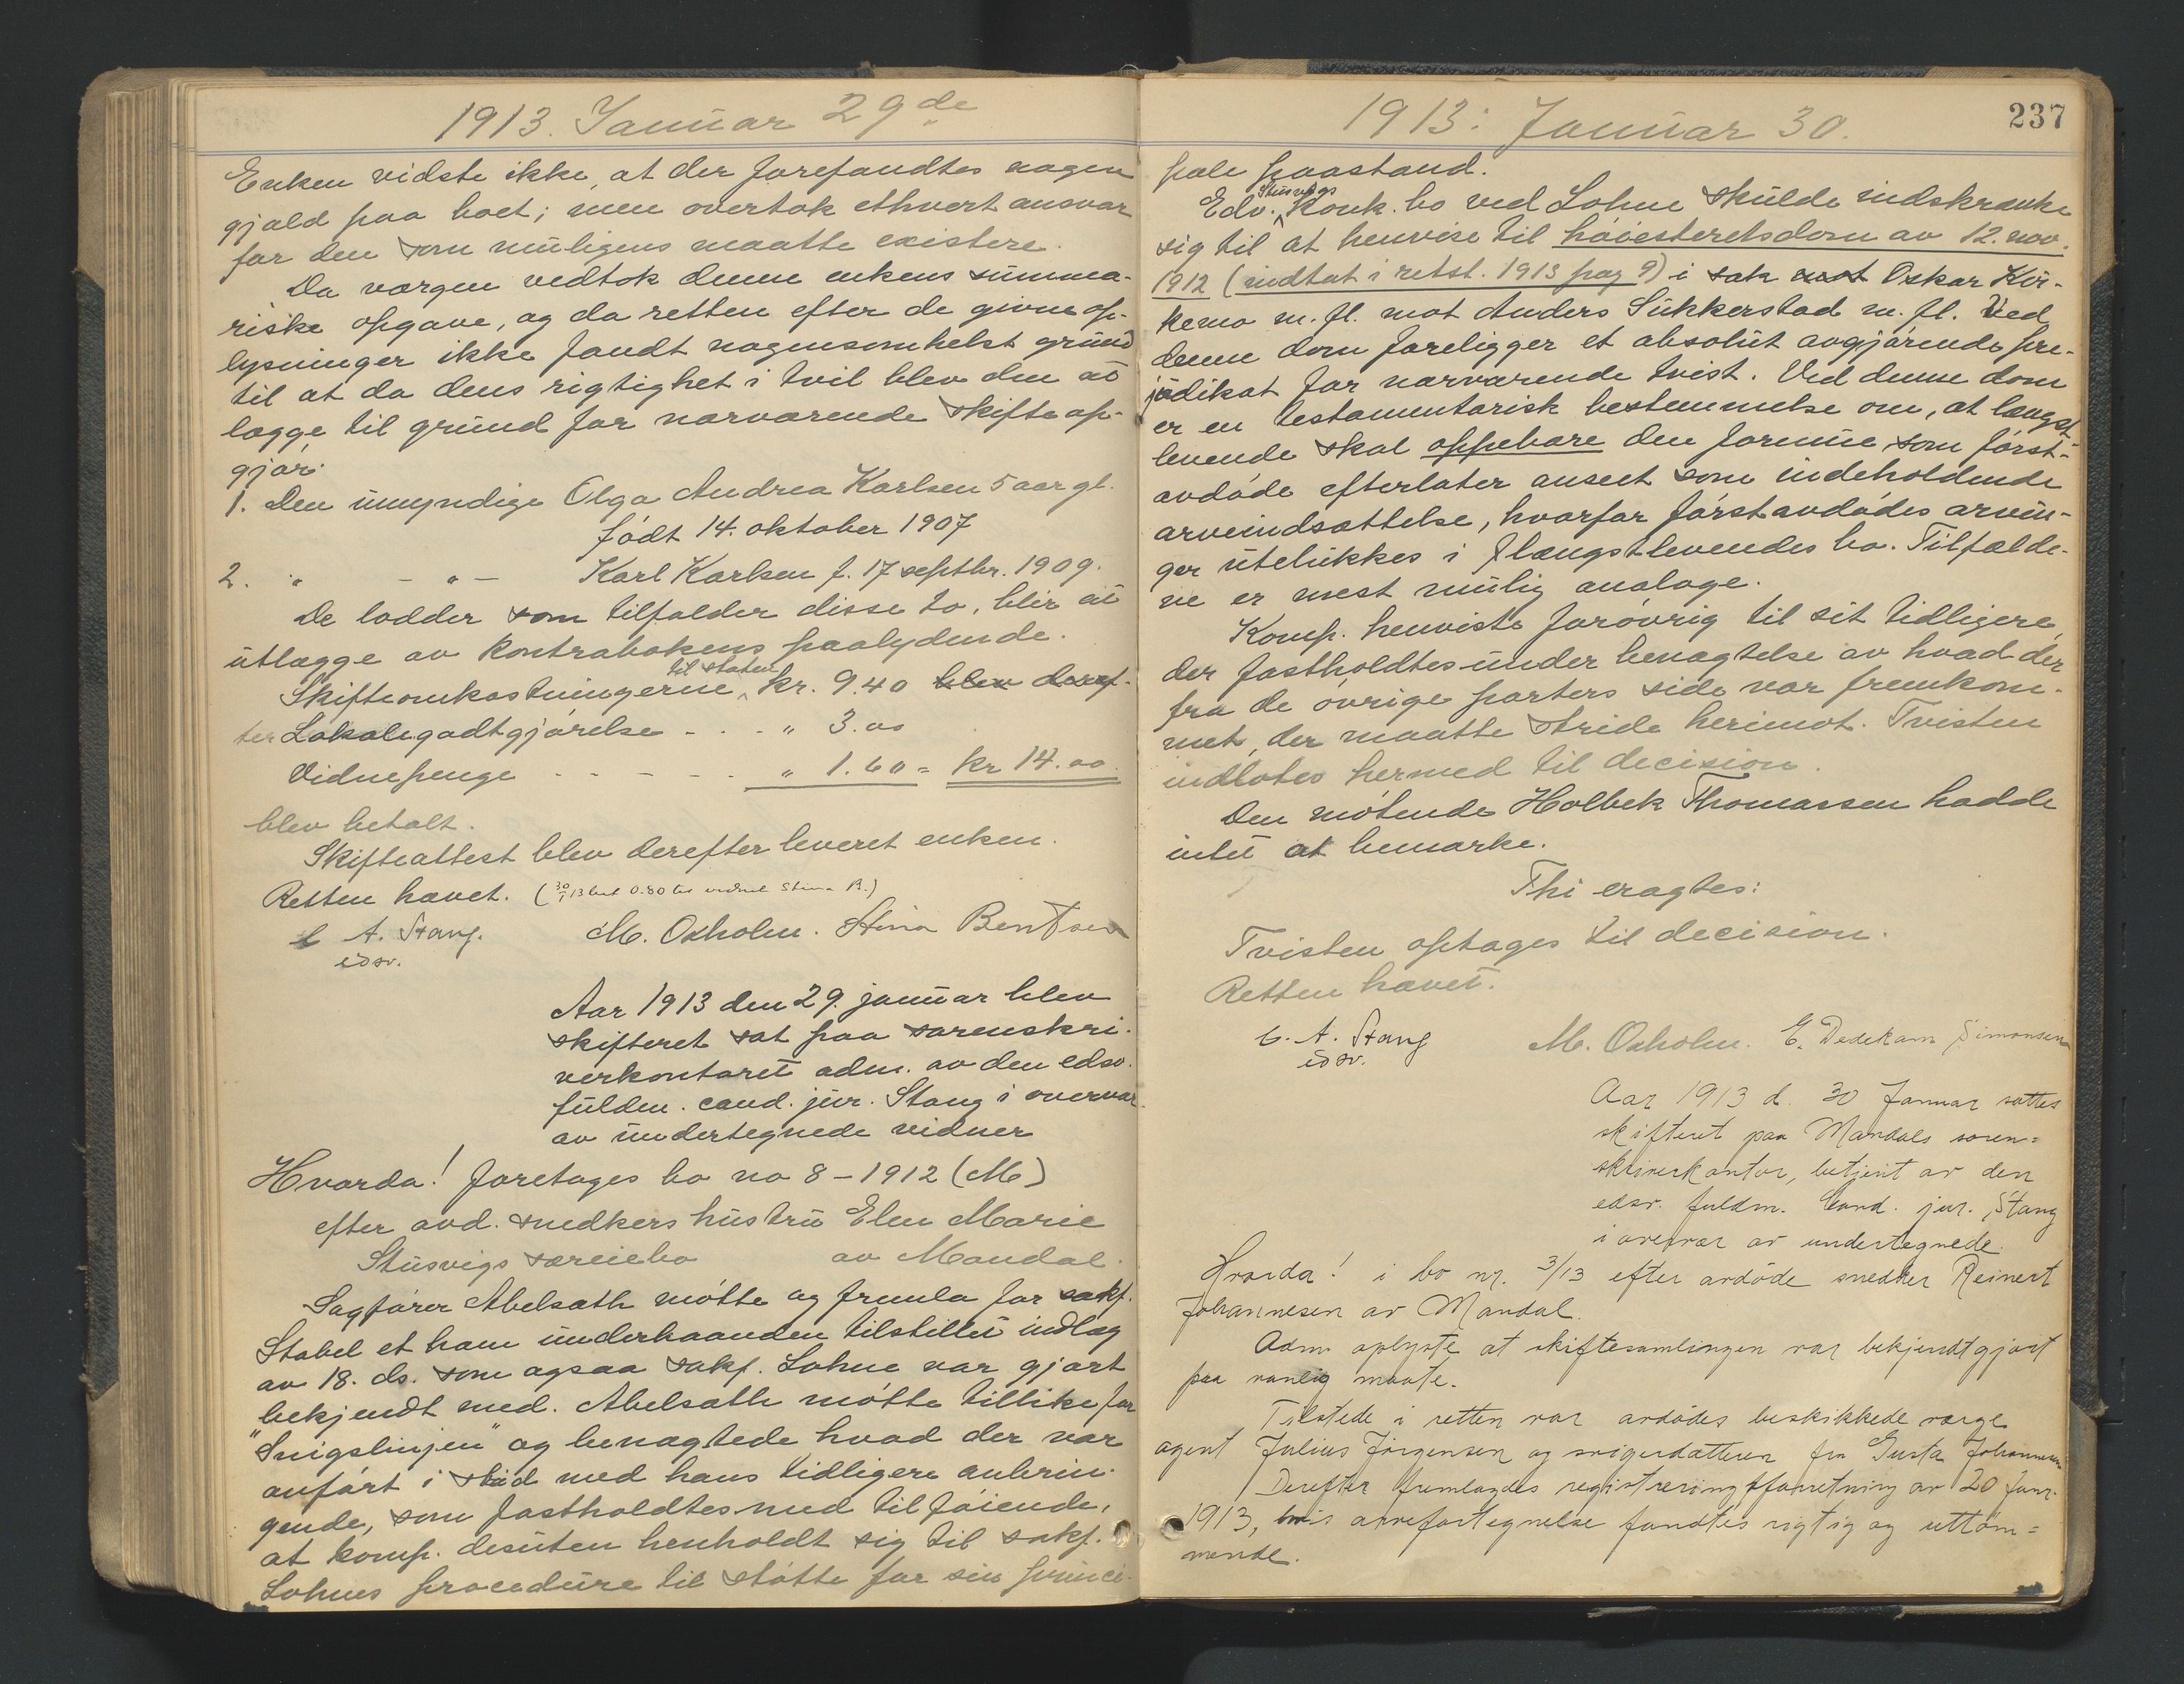 1913. Januar 29de
Enken vidste ikke, at der forefandtes nogen
gjæld paa boet; men overtok ethvert ansvar
for den som muligens maatte existere.
Da værgen vedtok denne enkens summa-
riske opgave, og da retten efter de givne op-
lysninger ikke fandt nogensomhelst grund
til at dra dens rigtighet i tvil blev den at
lægge til grund for nærværende skifteop-
gjør:
1. Den umyndige Olga Andrea Karlsen 5 aar gl.
født 14. oktober 1907
2. " - " - Karl Karlsen f. 17 septbr. 1909.
De lodder som tilfalder disse to, blir at
utlægge av kontrabokens paalydende.
Skifteomkostningerne til staten kr. 9.40 blev deref-
ter Lokalegodtgjørelse - - - " 3.00
Vidnepenge - - - - - " 1.60 = kr 14.00
blev betalt.
Skifteattest blev derefter leveret enken.
Retten hævet. (30/1 13 bet 0.80 til vidnet Stina B.)
C. A. Stang. M. Oxholm. Stina Bentsen
edsv.
Aar 1913 den 29. januar blev
skifteret sat paa sorenskri-
verkontoret adm. av den edsv.
fuldm. cand. jur. Stang i overvær
av undertegnede vidner
Hvorda! foretages bo no 8 - 1912 (M)
efter avd. snedkers hustru Elen Marie
Stusvigs særeiebo av Mandal.
Sagfører Abelsæth møtte og fremla for sakf.
Stabel et ham underhaanden tilstillet indlæg
av 18. ds. som ogsaa sakf. Lohne var gjort
bekjendt med. Abelsæth møtte tillike for
"Snigslinjen" og benægtede hvad der var
anført i strid med hans tidligere anbrin-
gende, som fastholdtes med tilføiende,
at komp. desuten henholdt sig til sakf.
Lohnes procedure til støtte for sin princi-
1913: Januar 30. 237
pale paastand.
Edv. Stusvigs konk. bo ved Lohne skulde indskrænke
sig til at henvise til høiesteretsdom av 12. nov.
1912 (indtat i retst. 1913 pag 9) i sak mot Oskar Kir-
kemo m. fl. mot Anders Sukkerstad m. fl. Ved
denne dom foreligger et absolut avgjørende præ-
judikat for nærværende tvist. Ved denne dom
er en testamentarisk bestemmelse om, at længst-
levende skal oppebære den formue, som først-
avdøde efterlater anseet som indeholdende
arveindsættelse, hvorfor førstavdødes arvin-
ger utelukkes i længstlevendes bo. Tilfælde-
ne er mest mulig analoge.
Komp. henviste forøvrig til sit tidligere,
der fastholdtes under benægtelse av hvad der
fra de øvrige parters side var fremkom-
met, der maatte stride herimot. Tvisten
indlotes hermed til decision.
Den møtende Holbek Thomassen hadde
intet at bemærke.
Thi eragtes:
Tvisten optages til decision.
Retten hævet.
C. A. Stang M. Oxholm. E. Dedekam Simonsen
edsv.
Aar 1913 d. 30 Januar sattes
skifteret paa Mandals soren=
skriverkontor, betjent av den
edsv. fuldm. Cand. jur. Stang
i overvær av undertegnede.
Hvorda! i bo nr. 3/13 efter avdøde snedker Reinert
Johannesen av Mandal.
Adm. oplyste at skiftesamlingen var bekjendtgjort
paa vanlig maate.
Tilstede i retten var avdødes beskikkede værge
agent Julius Jörgensen og svigerdatteren fru Gusta Johannesen
Derefter fremlagdes registreringsforretning av 20 Janr.
1913, hvis arvefortegnelse fandtes rigtig og uttöm=
mende.